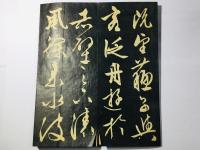 既望蘇子與
客泛舟遊於
赤壁之下清
風徐來水波